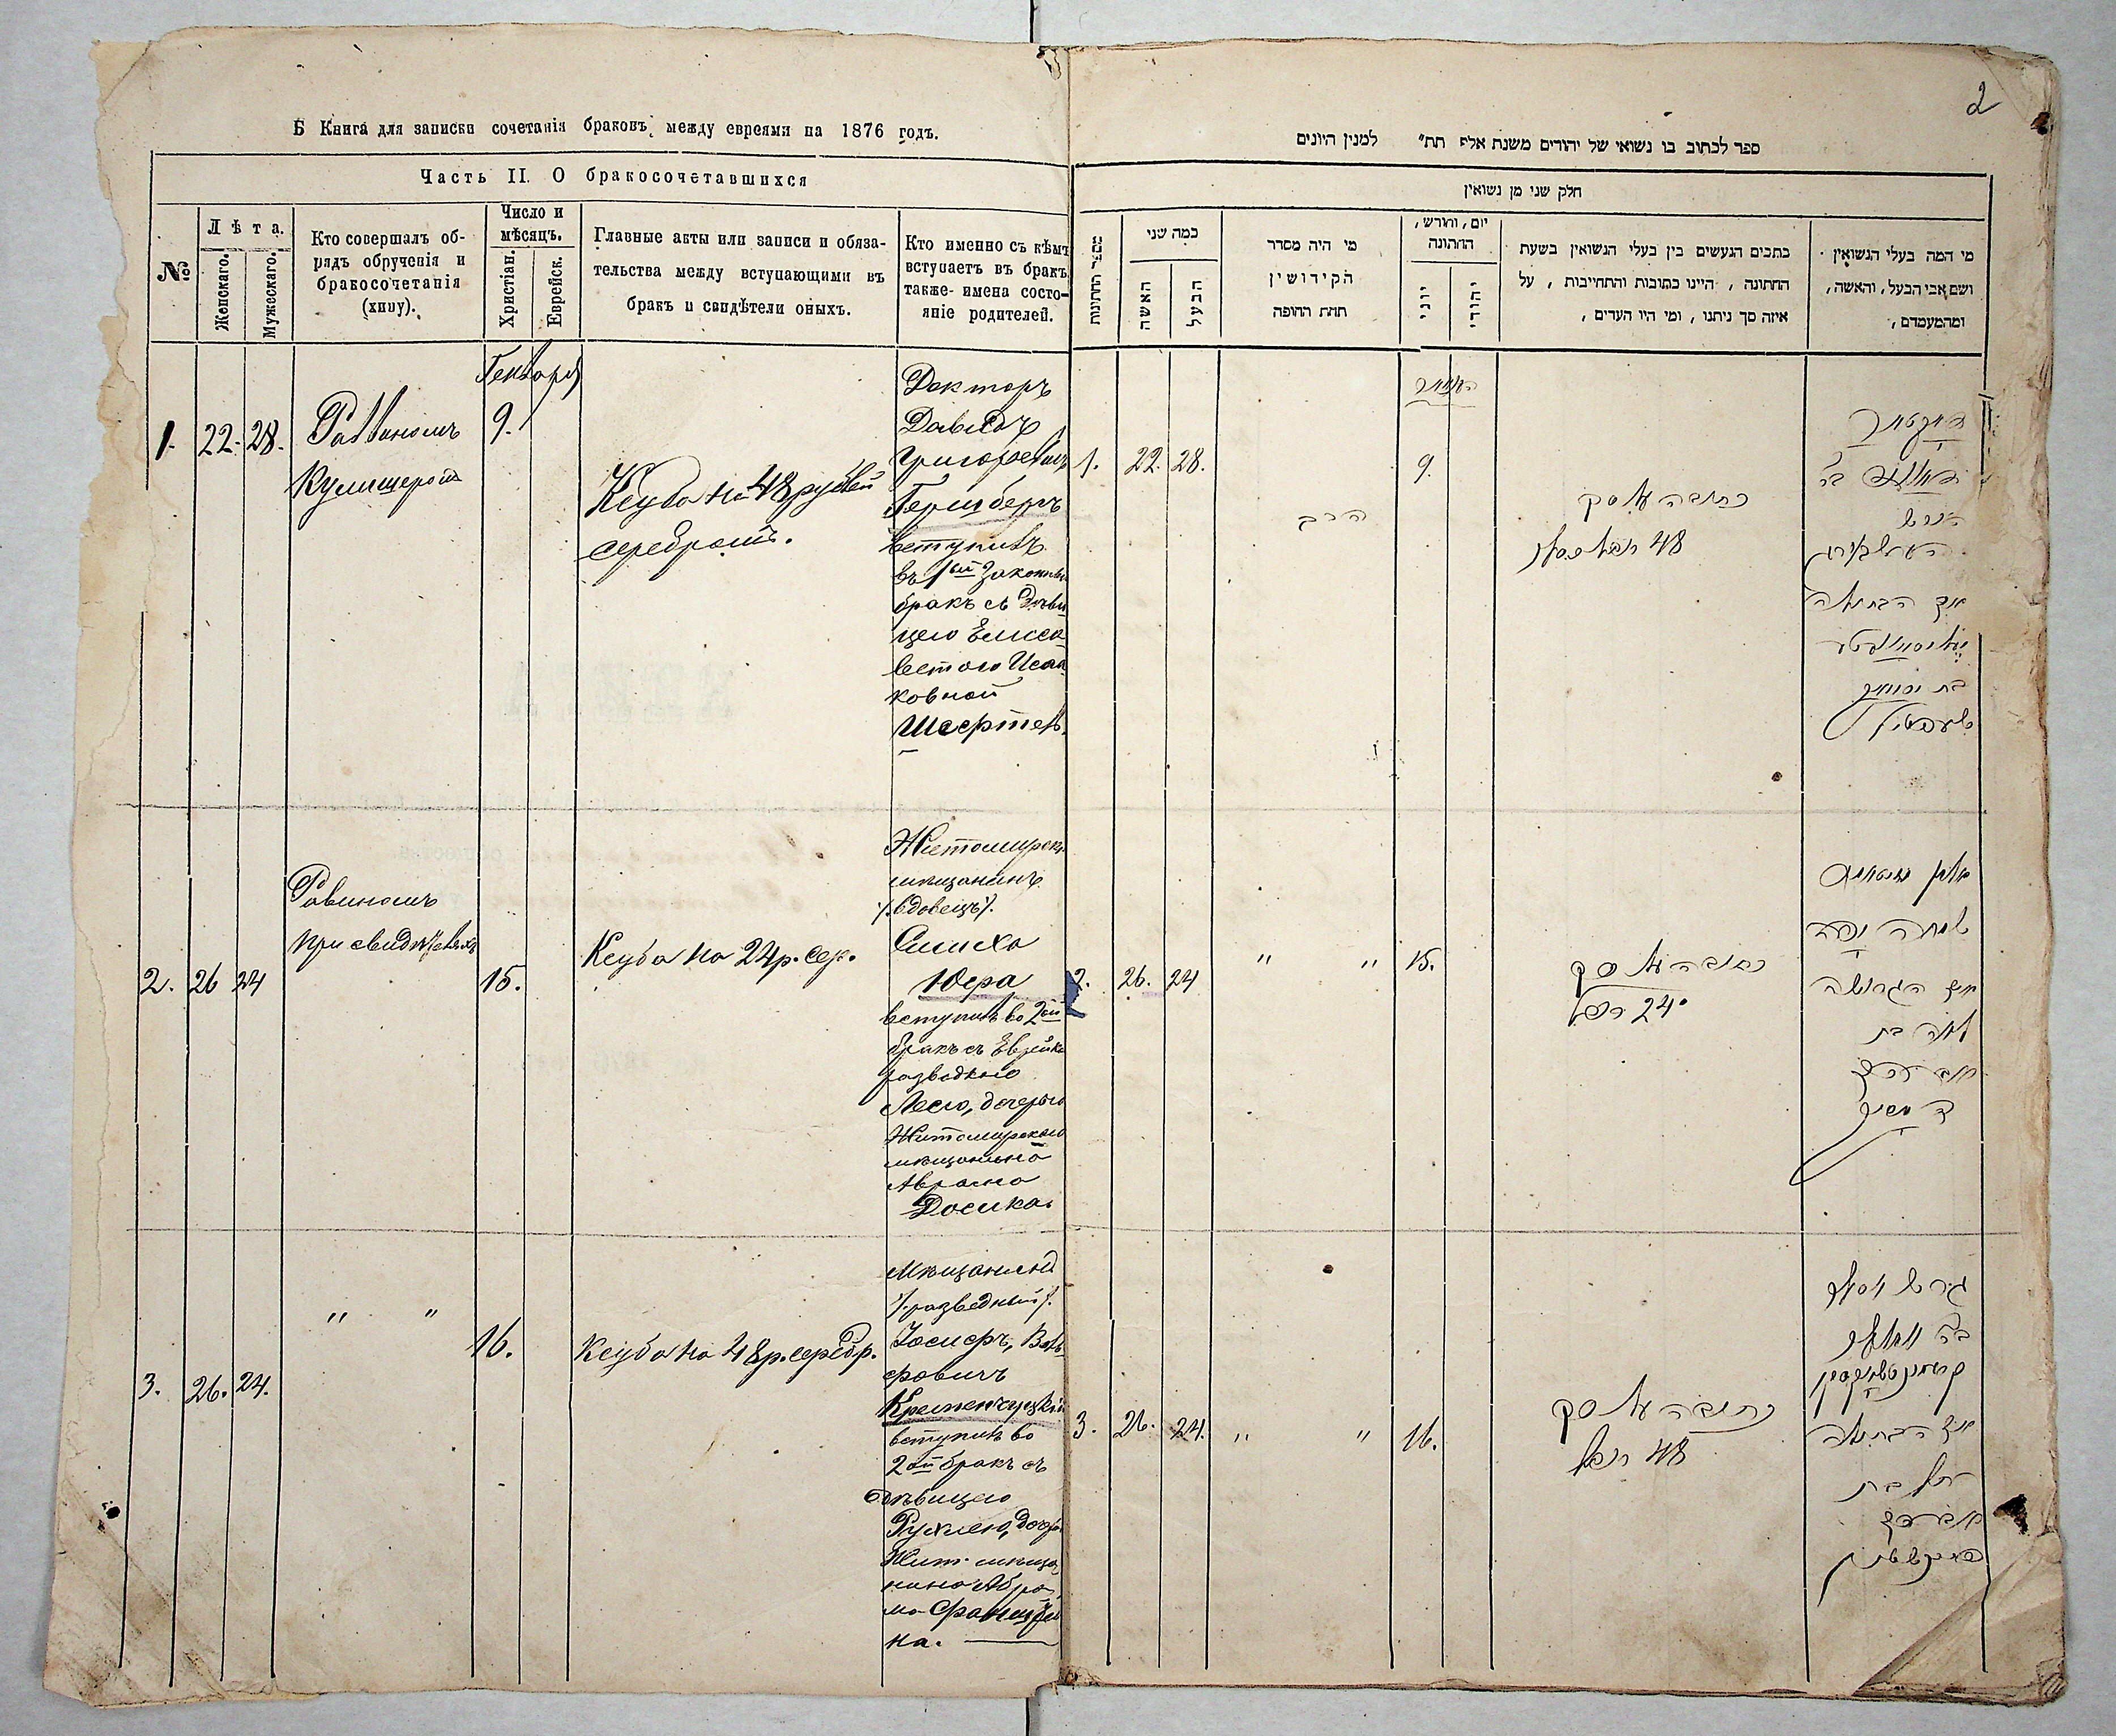 Б Книга для записки сочетанія браковъ между евреями на 1876 годъ.
Часть II. О бракосочетавшихся
№
Лѣта.
Женскаго.
Мужескаго.
Кто совершалъ об-
рядъ обрученія и
бракосочетанія
(хипу).
Число и
мѣсяцъ.
Христіан.
Еврейск.
Главные акты или записи и обяза-
тельства между вступающими въ
бракъ и свидѣтели оныхъ.
Кто именно съ кѣмъ
вступаетъ въ бракъ
также имена состо-
яніе родителей.
Генваря
1. 22. 28.
Раввиномъ
Кулишеромъ
9.
Ксуба на 48 рублей
серебромъ.
Докторъ
Давидъ
Григорьевичъ
Гершбергъ
вступилъ
въ 1ый законный
бракъ съ дѣви
цею Елиса
ветою Исаа
ковной
2. 26 24
Равиномъ
при свидѣтеляхъ
15.
Ксуба на 24 р. сер.
Житомирск.
мѣщанинъ
/.вдовецъ/.
Симха
Юфа
вступилъ во 2ой
бракъ съ Еврейкою
разведеною
Леею, дочерью
Житомирскаго
мѣщанина
Аврама
Досика.
3. 26. 24.
" "
16.
Ксуба на 48 р. серебр.
Мѣщанинъ
/.разведный/.
Іосифъ, Воль-
фовичъ
Кременчуцкій
вступилъ во
2ой бракъ съ
дѣвицею
Рухлею, дочерью
Жит. мѣща
нина Абра
ма
на.
2
ספר לכתוב בו נשואי של יהודים משנת אלף תת״ למנין היונים
חלק שני מן נשואין
מספר החתונות
כמה שני
האשה
הבעל
מי היה מסדר
הקידושין
תחת החופה
יום, וחורש,
החתונה
יוני
יהודי
כתבים הנעשים בין בעלי הנשואין בשעת
החתונה, היינו כתובות והתחייבות, על
איזה סך ניתנו, ומי היו העדים,
מי המה בעלי הנשואין
ושם אבי הבעל, והאשה,
ומהמעמדם,
1. 22. 28.
הרב
9.
כתובה על סך
48
דאקטאר
הירש
הערשבערג
עם הבתולה
בת
2. 26. 24
" "
15.
כתובה על סך
24 רובל
שמחה יופע
עם הגרושה
לאה בת
אברהם
3. 26. 24.
" "
16.
כתובה על סך
48 רובל
עם הבתולה
רחל בת
אברהם